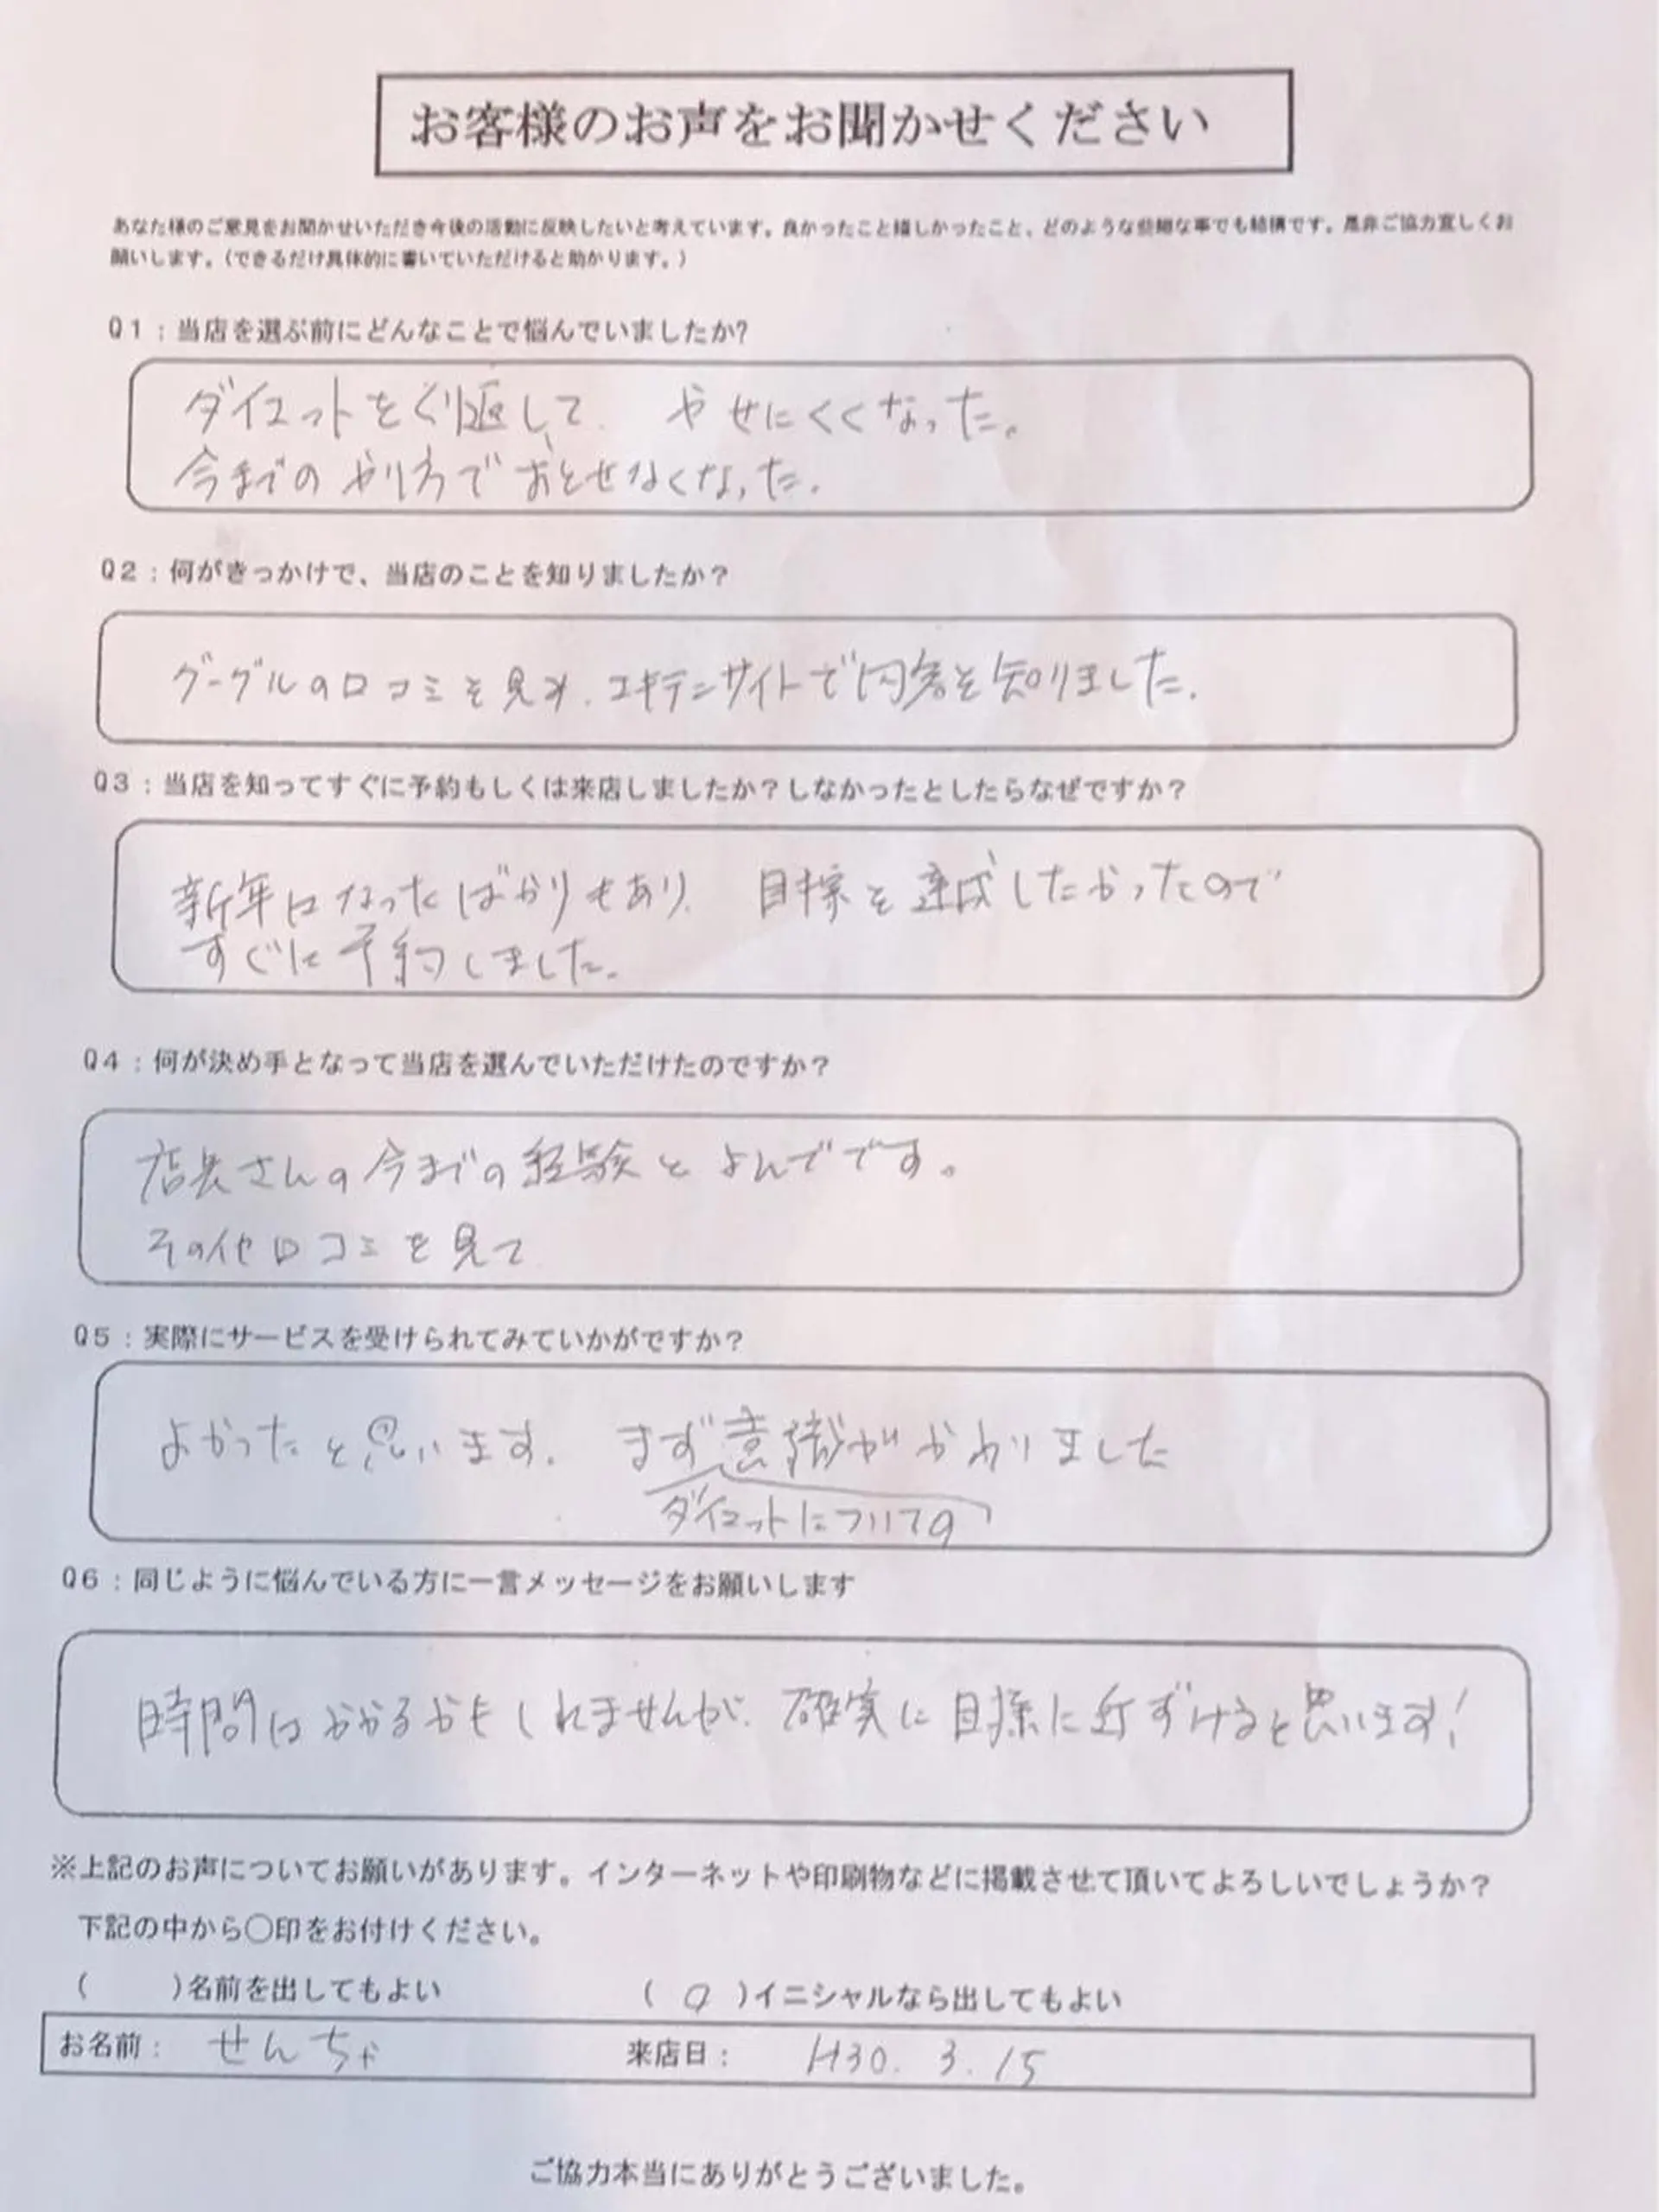 お客様のお声をお聞かせください
あなた様のご意見をお聞かせいただき今後の活動に反映したいと考えています。良かったこと嬉しかったこと、どのような些細な事でも結構です。是非ご協力宜しくお
願いします。(できるだけ具体的に書いていただけると助かります。)
Q1:当店を選ぶ前にどんなことで悩んでいましたか?
ダイエットをぐり返して. やせにくくなった。
今までのやり方でおとせなくなった.
Q2:何がきっかけで、当店のことを知りましたか?
グーグルの口コミを見み. エキテンサイトで内容を知りました.
Q3:当店を知ってすぐに予約もしくは来店しましたか?しなかったとしたらなぜですか?
新年になったばかりもあり. 目標を達成したかったので
すぐに予約しました.
Q4:何が決め手となって当店を選んでいただけたのですか?
店長さんの今までの経験とよんでです。
その他口コミを見て
Q5:実際にサービスを受けられてみていかがですか?
よかったと思います. まず意識がかわりました
ダイエットについての
Q6:同じように悩んでいる方に一言メッセージをお願いします
時間はかかるかもしれませんが. 確実に目標に近ずけると思います!
※上記のお声についてお願いがあります。インターネットや印刷物などに掲載させて頂いてよろしいでしょうか?
下記の中から〇印をお付けください。
( )名前を出してもよい ( 〇 )イニシャルなら出してもよい
お名前: せんちゃ 来店日: H30. 3. 15
ご協力本当にありがとうございました。